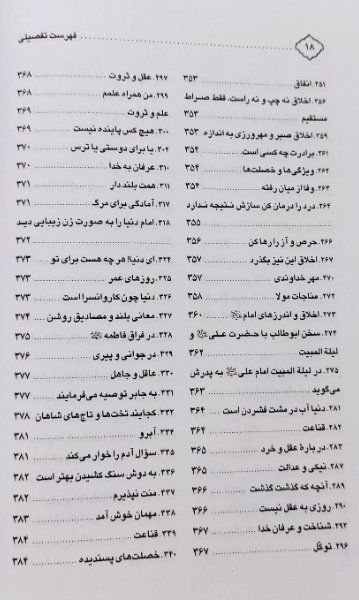 ۱۸
فهرست تفصیلی
۲۵۱. انفاق ۳۵۳
۲۵۶. اخلاق نه چپ و نه راست، فقط صراط
مستقیم ۳۵۳
۲۵۹. اخلاق صبر و مهرورزی به اندازه ۳۵۳
۲۶۱. برادرت چه کسی است ۳۵۴
۲۶۲. ویژگی‌ها و خصلت‌ها ۳۵۴
۲۶۳. وفا از میان رفته ۳۵۴
۲۶۴. درد را درمان کن سازش نتیجه ندارد
۳۵۵
۲۶۶. حرص و آز را رها کن ۳۵۶
۲۶۷. اخلاق این نیز بگذرد ۳۵۷
۲۷۰. مهر خداوندی ۳۵۷
۲۷۲. مناجات مولا ۳۵۸
۲۷۳. اخلاق و اندرزهای امام ۳۶۰
۲۷۴. سخن ابوطالب با حضرت علی و
لیلة المبیت ۳۶۲
۲۷۵. در لیلة المبیت امام علی به پدرش
می‌گوید ۳۶۳
۲۸۱. دنیا آب در مشت فشردن است ۳۶۴
۲۸۴. قناعت ۳۶۴
۲۸۵. دربارهٔ عقل و خرد ۳۶۵
۲۸۷. نیکی و عدالت ۳۶۵
۲۸۹. آنچه که گذشت گذشت ۳۶۶
۲۹۰. روزی به عقل نیست ۳۶۶
۲۹۲. شناخت و عرفان خدا ۳۶۷
۲۹۶. توکّل ۳۶۷
۲۹۷. عقل و ثروت ۳۶۸
۲۹۸. من همراه علمم ۳۶۸
علم و ثروت ۳۶۹
۳۰۰. هیچ کس پاینده نیست ۳۶۹
۳۰۴. یا برای دوستی یا ترس ۳۷۰
۳۱۰. عرفان به خدا ۳۷۰
۳۱۱. همت بلند دار ۳۷۱
۳۱۷. آمادگی برای مرگ ۳۷۱
۳۱۸. امام دنیا را به صورت زن زیبایی دید
۳۷۲
۳۲۴. ای دنیا! هر چه هست برای تو ۳۷۳
۳۲۵. روزهای عمر ۳۷۳
۳۲۶. دنیا چون کاروانسرا است ۳۷۳
۳۲۷. معانی بلند و مصادیق روشن ۳۷۴
۳۲۸. در فراق فاطمه ۳۷۵
۳۲۹. در جوانی و پیری ۳۷۶
۳۳۰. عاقل و جاهل ۳۷۷
۳۳۱. به جابر توصیه می‌فرمایند ۳۷۷
۳۳۲. کجایند تخت‌ها و تاج‌های شاهان ۳۷۸
۳۳۴. آبرو ۳۸۱
۳۳۵. سؤال آدم را خوار می‌کند ۳۸۱
۳۳۶. به دوش سنگ کشیدن بهتر است ۳۸۲
۳۳۷. منت نپذیرم ۳۸۲
۳۳۸. مهمان خوش آمد ۳۸۳
۳۳۹. قناعت ۳۸۴
۳۴۰. خصلت‌های پسندیده ۳۸۴